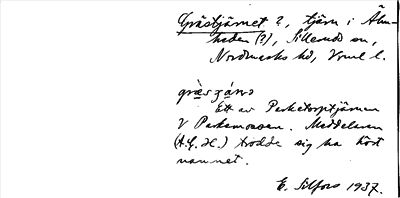 Grästjärnet ?, tjärn i Älm-
heden (?), Sillerud sn,
Nordmarks hd, Vrml l.
Ett av Perketorptjärnen
V Perkemossen. Meddelaren
(A.G.H.) trodde sig ha hört
namnet.
E. Silfors 1937.